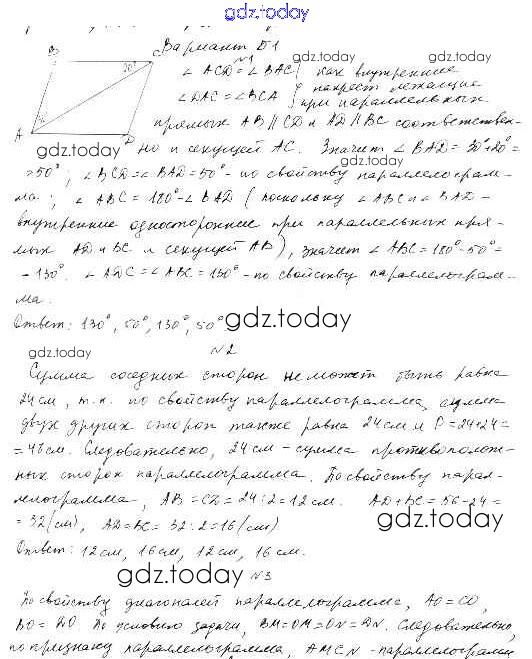 gdz.today
Вариант Б1
№1
∠ACD = ∠BAC | как внутренние
∠DAC = ∠BCA } накрест лежащие
при параллельных
прямых AB || CD и AD || BC соответствен-
но и секущей AC. Значит ∠BAD = 30°+20°=
=50°, ∠BCD = ∠BAD = 50° - по свойству параллелограм-
ма; ∠ABC = 180° - ∠BAD (поскольку ∠ABC и ∠BAD -
внутренние односторонние при параллельных пря-
мых AD и BC и секущей AB), значит ∠ABC = 180° - 50° =
- 130°. ∠ADC = ∠ABC = 130° - по свойству параллелограм-
ма.
Ответ: 130°, 50°, 130°, 50°.
№2
Сумма соседних сторон не может быть равна
24 см, т.к. по свойству параллелограмма, сумма
двух других сторон также равна 24 см и P = 24+24 =
= 48 см. Следовательно, 24 см - сумма противополож-
ных сторон параллелограмма. По свойству парал-
лелограмма, AB = CD = 24 : 2 = 12 см. AD + BC = 56 - 24 =
= 32 (см), AD = BC = 32 : 2 = 16 (см)
Ответ: 12 см, 16 см, 12 см, 16 см.
№3
По свойству диагоналей параллелограмма, AO = CO,
BO = DO. По условию задачи, BM = OM = ON = DN. Следовательно,
по признаку параллелограмма, AMCN - параллелограмм